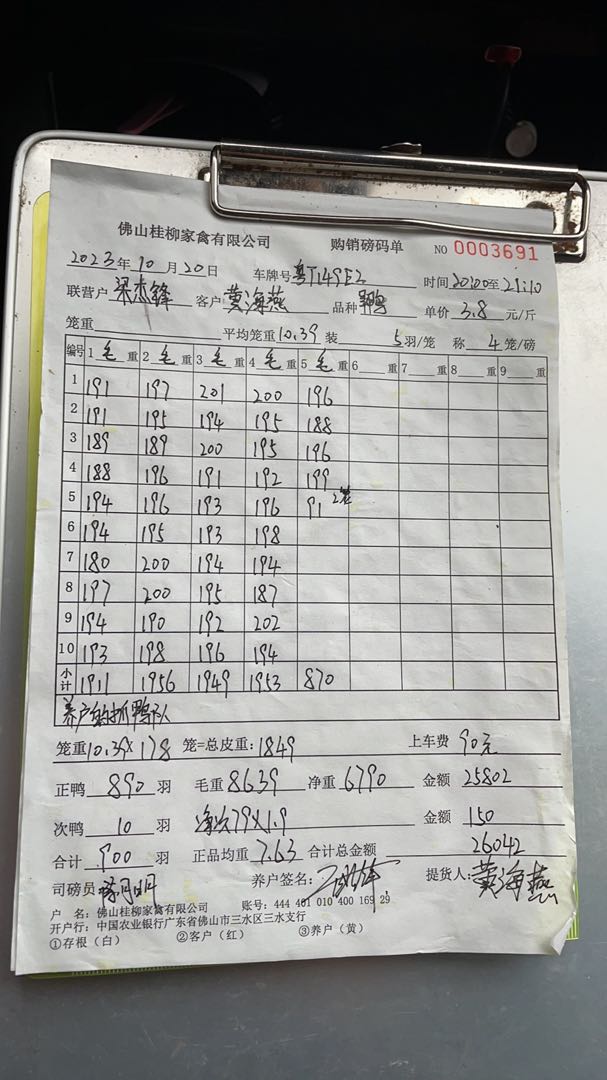 佛山桂柳家禽有限公司 购销磅码单 NO 0003691
2023年10月20日 车牌号粤T149E2 时间20:00至21:10
联营户 梁杰锋 客户 黄海燕 品种 鸭 单价 3.8 元/斤
笼重 平均笼重10.39 装 5羽/笼 称 4笼/磅
编号 1毛重 2毛重 3毛重 4毛重 5毛重 6 重 7 重 8 重 9 重
1 191 197 201 200 196
2 191 195 194 195 188
3 189 189 200 195 196
4 188 196 191 192 199
5 194 196 193 196 91 2笼
6 194 195 193 198
7 180 200 194 194
8 197 200 195 187
9 194 190 192 202
10 193 198 196 194
小计 1911 1956 1949 1953 870
养户 抓鸭队
笼重10.39×178 笼=总皮重:1849 上车费 90元
正鸭 890 羽 毛重8639 净重6790 金额 25802
次鸭 10 羽 净次79×1.9 金额 150
合计 900 羽 正品均重 7.63 合计总金额 26042
司磅员 养户签名: 提货人: 黄海燕
户 名: 佛山桂柳家禽有限公司 账号: 444 401 010 400 169 29
开户行: 中国农业银行广东省佛山市三水区三水支行
①存根(白) ②客户(红) ③养户(黄)